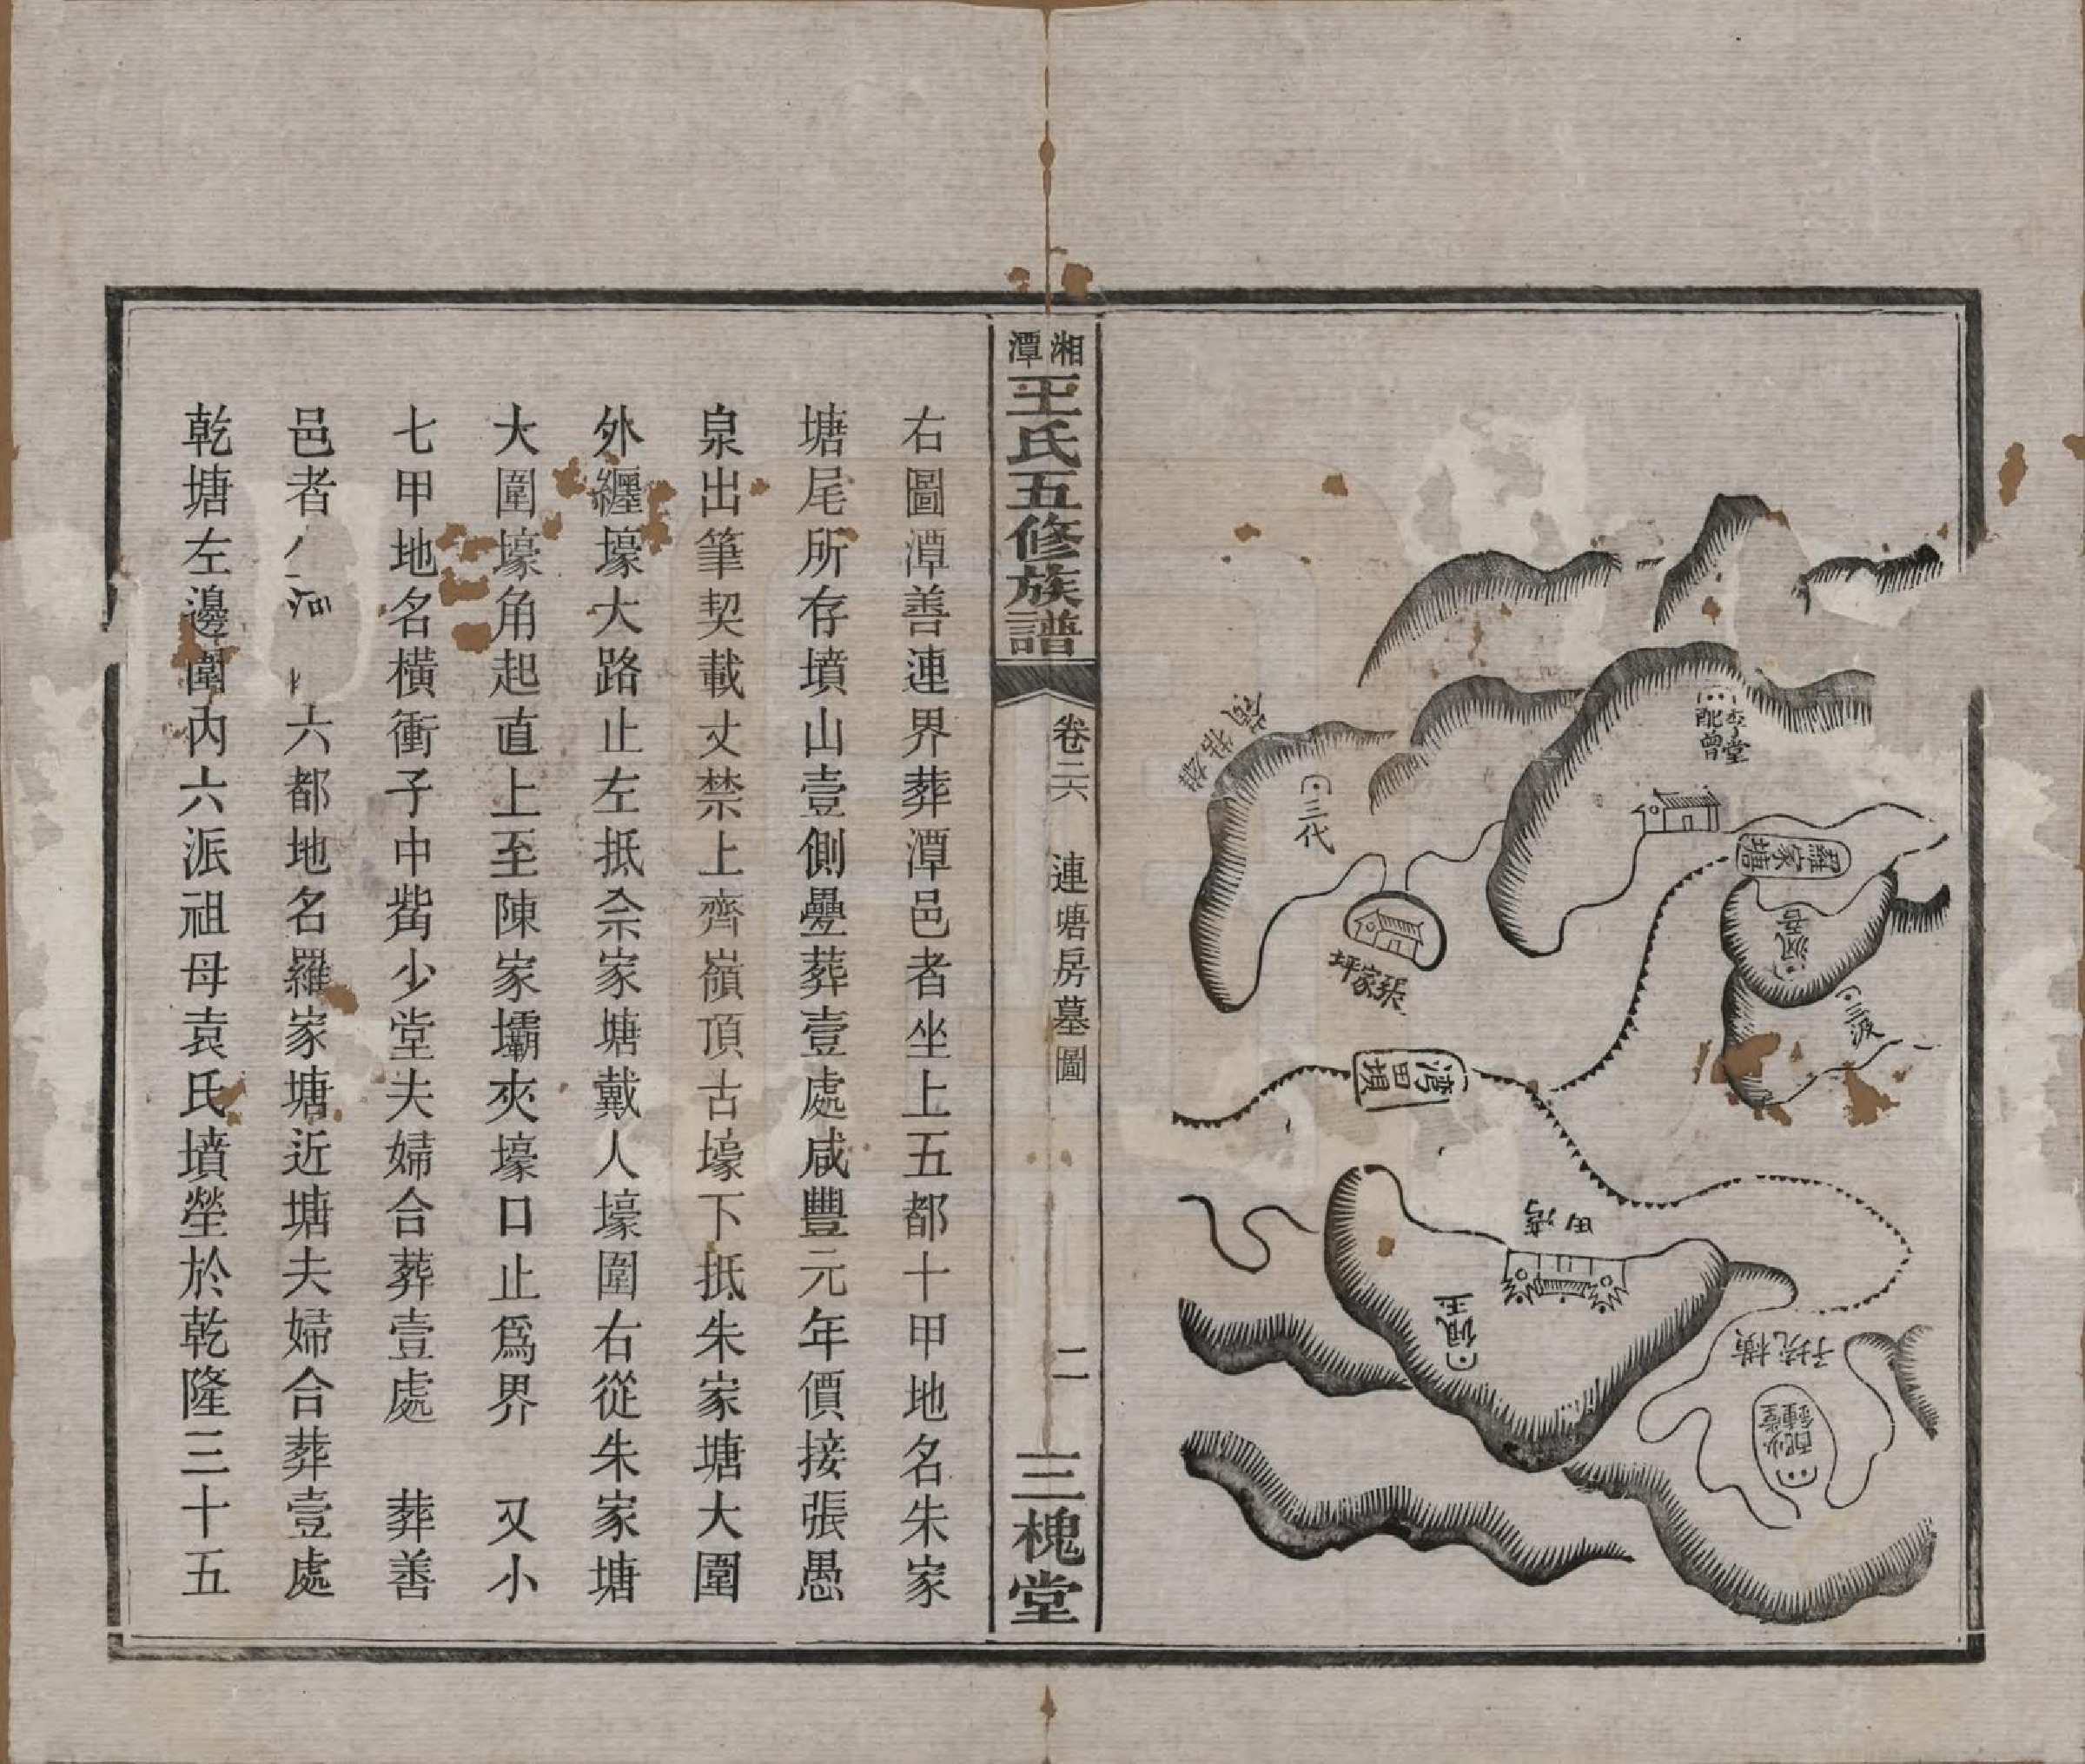 李堂
配曾
羅家塘
三代
張家坪
灣田壩
三派
田灣
橫坑子
配少堂
鍾
湘潭王氏五修族譜
卷二六
連塘房墓圖
二
三槐堂
右圖潭善連界葬潭邑者坐上五都十甲地名朱家
塘尾所存墳山壹側疊葬壹處咸豐元年價接張愚
泉出筆契載丈禁上齊嶺頂古壕下抵朱家塘大圍
外纏壕大路止左抵佘家塘戴人壕圍右從朱家塘
大圍壕角起直上至陳家壩夾壕口止爲界 又小
七甲地名橫衝子中觜少堂夫婦合葬壹處 葬善
邑者 六都地名羅家塘近塘夫婦合葬壹處
乾塘左邊圍內六派祖母袁氏墳塋於乾隆三十五